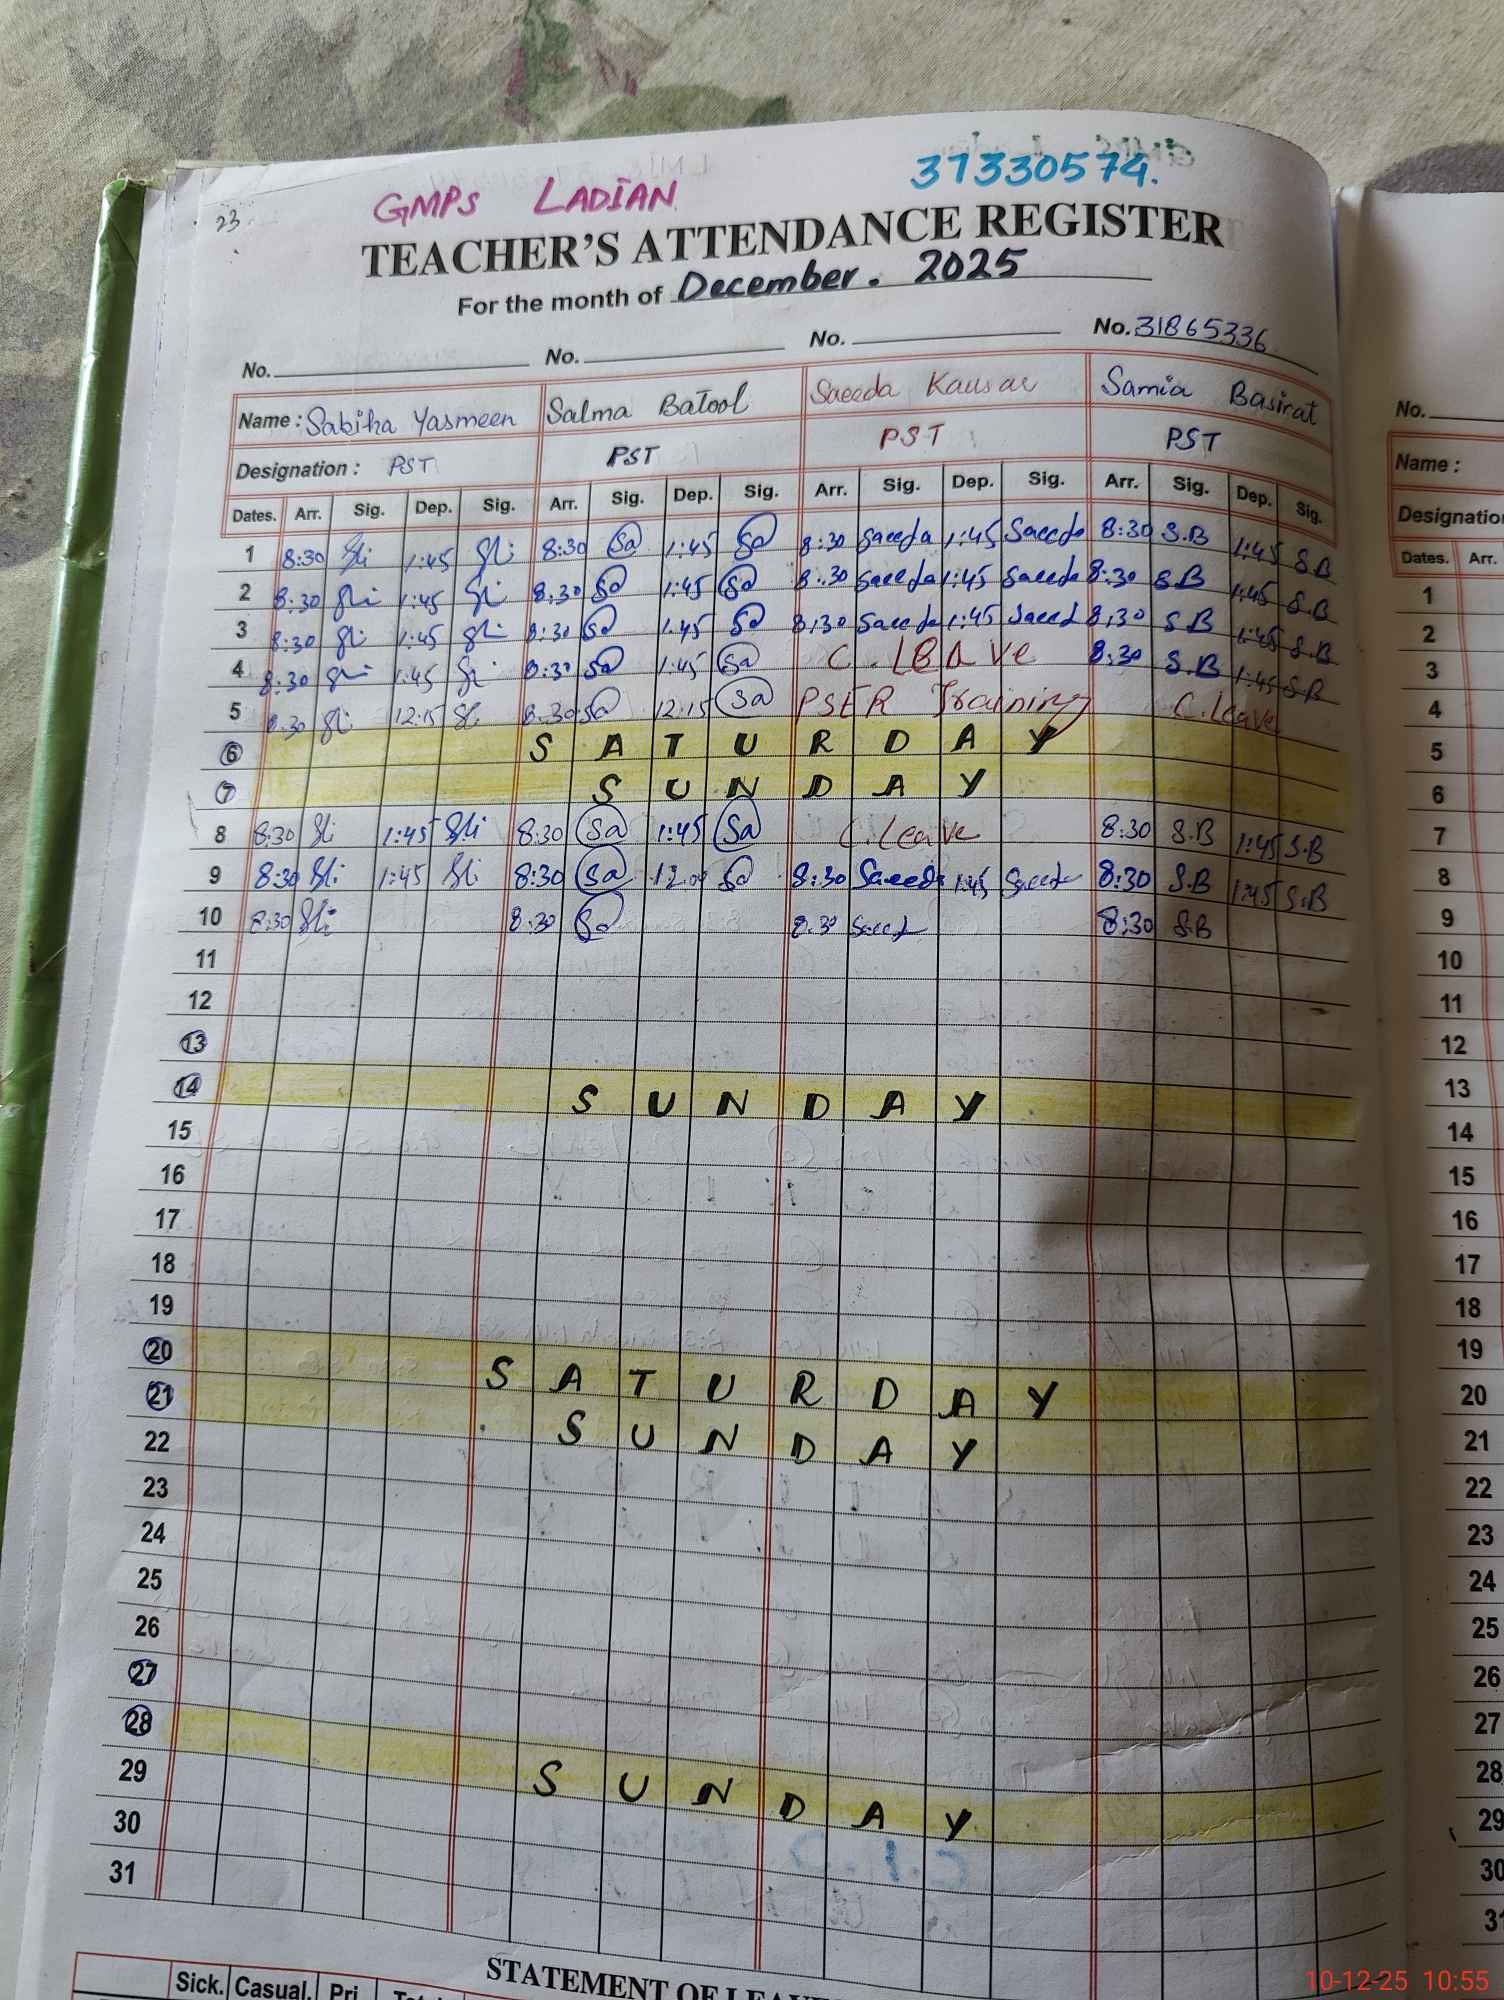 23
GMPS LADIAN 37330574.
TEACHER'S ATTENDANCE REGISTER
For the month of December. 2025
No. No. No. No. 31865336
Name: Sabiha Yasmeen Salma Batool Saeeda Kausar Samia Basirat
Designation: PST PST PST PST
Dates. Arr. Sig. Dep. Sig. Arr. Sig. Dep. Sig. Arr. Sig. Dep. Sig. Arr. Sig. Dep. Sig.
1 8:30 1:45 8:30 Sa 1:45 Sa 8:30 Saeeda 1:45 Saeeda 8:30 S.B 1:45 S.B
2 8:30 1:45 8:30 Sa 1:45 Sa 8:30 Saeeda 1:45 Saeeda 8:30 S.B 1:45 S.B
3 8:30 1:45 8:30 Sa 1:45 Sa 8:30 Saeeda 1:45 Saeed 8:30 S.B 1:45 S.B
4 8:30 1:45 8:30 Sa 1:45 Sa C. 8:30 S.B 1:45 S.B
5 8:30 12:15 8:30 Sa 12:15 Sa Training C.leave
6 SATURDAY
7 SUNDAY
8 8:30 1:45 8:30 Sa 1:45 Sa C.leave 8:30 S.B 1:45 S.B
9 8:30 1:45 8:30 Sa Sa 8:30 Saeeda 1:45 Saeeda 8:30 S.B 1:45 S.B
10 8:30 8:30 Sa 8:30 Saeed 8:30 S.B
11
12
13
14 SUNDAY
15
16
17
18
19
20 SATURDAY
21 SUNDAY
22
23
24
25
26
27
28 SUNDAY
29
30
31
STATEMENT OF LEAVE
Sick. Casual. Pri
No.
Name:
Designation
Dates. Arr.
1
2
3
4
5
6
7
8
9
10
11
12
13
14
15
16
17
18
19
20
21
22
23
24
25
26
27
28
29
30
31
10-12-25 10:55